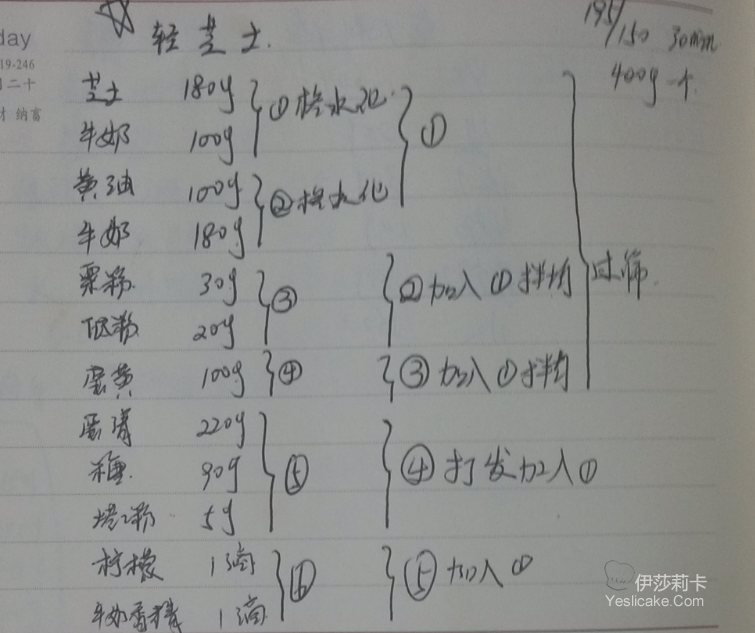 day
19-246
二十
财 纳富
☆ 轻芝士.
195/150 30min
400g 一个
芝士 180g ①隔水化
牛奶 100g
①
黄油 100g ②隔水化
牛奶 180g
粟粉 30g ③ ②加入①拌均
低粉 20g
过筛.
蛋黄 100g ④ ③加入①拌均
蛋清 220g
糖. 90g ⑤ ④打发加入①
塔塔粉 5g
柠檬 1滴 ⑥ ⑤加入①
牛奶香精 1滴
伊莎莉卡
Yeslicake.Com